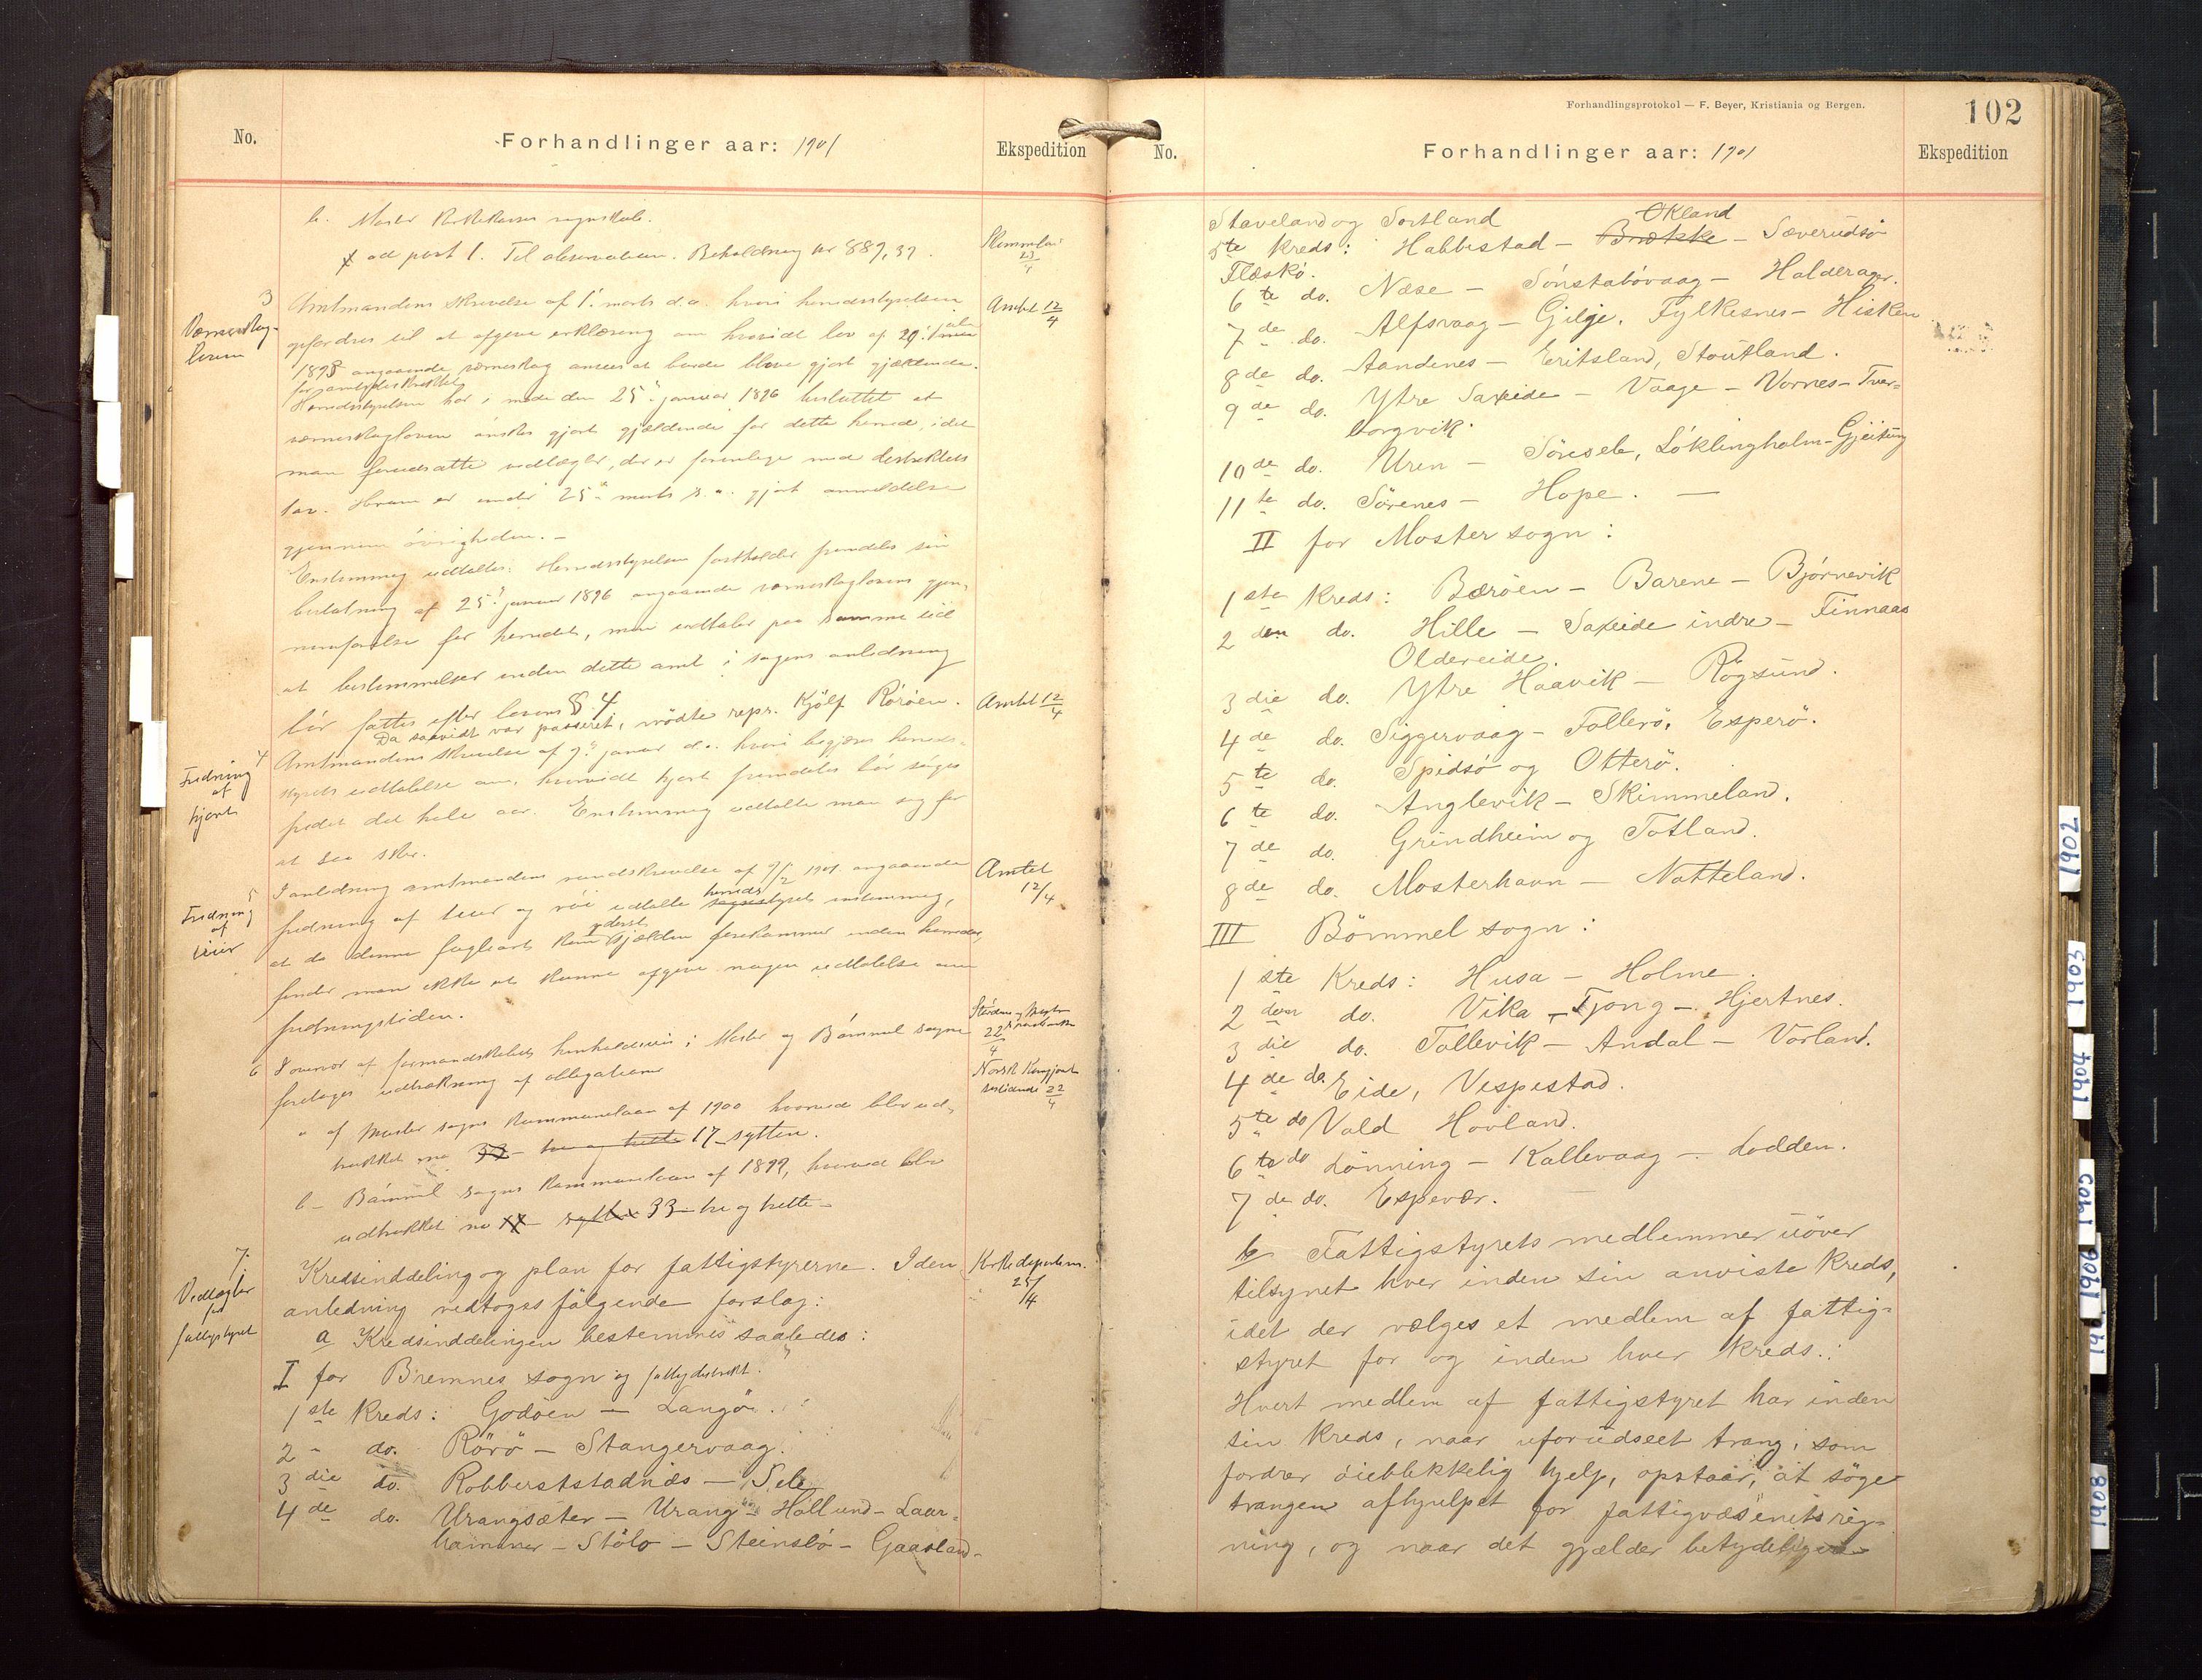 No.
Forhandlinger aar: 1901
Ekspedition
b. Moster Kirkekasses regnskab.
ad post 1. Til observation. Beholdning kr 889,37.
3
Værneskog-
loven
Amtmandens skrivelse af 1ː marts d.a. hvori herredsstyrelsen
Amtet 12/4
opfordres til at afgive erklæring om hvorvidt lov af 20ː
1893 angaaende verneskog ansees at burde blive gjort gjældende
for amtet
Herredsstyrelsen har i møde den 25ː januar 1896 besluttet at
verneskogloven ønskes gjort gjældende for dette herred, idet
man forudsatte vedtægter, der er forenlige med distriktets
tarv. Herom er under 25ː marts s.a. gjort anmeldelse
gjennem øvrigheden. —
Enstemmig udtaltes: Herredsstyrelsen fastholder fremdeles sin
beslutning af 25ː januar 1896 angaaende verneskoglovens gjen-
nemførelse for herredet, men udtaler paa samme tid
at bestemmelser inden dette amt i sagens anledning
bør fattes efter lovens § 4
Da saavidt var passeret, mødte repr. Kjölf Rörøen.
4
Fredning
af
hjort
Amtmandens skrivelse af 9ː januar d.a. hvori begjæres herreds-
Amtet 12/4
styrets udtalelse om, hvorvidt hjort fremdeles bør søges
fredet det hele aar. Enstemmig udtalte man sig for
at saa sker.
5
Fredning
af
tiur
I anledning amtmandens rundskrivelse af 9/2 1901 angaaende
Amtet
12/4
fredning af tiur og röi udtalte herredsstyret enstemmig,
at da denne fugleart kun yderst sjælden forekommer inden herredet,
finder man ikke at kunne afgive nogen udtalelse om
fredningstiden.
6 I overvær af formandskabets henholdsvis i Moster og Bömmel sogne
22/4
foretoges udtrækning af obligationer
Norsk Kungjørelses
tidende 22/4
a af Moster sogns kommunelaan af 1900 hvorved blev ud-
trukket no 33 – tre og trette 17 – sytten.
b – Bömmel sogns kommunelaan af 1899, hvorved blev
udtrukket no 17 – sytten 33 – tre og trette –
7.
Vedtægter
for
fattigstyret
Kredsinddeling og plan for fattigstyrerne. I den
Kirkedepartem.
25/4
anledning vedtoges følgende forslag:
a Kredsinddelingen bestemmes saaledes:
I for Bremnes sogn og fattigdistrikt.
1 ste Kreds: Godöen — Langöi.
2 – do. Rörö — Stangervaag.
3 die do. Robberststadnæs — Sele
4 de do. Urangsæter — Urang – Hollund – Laar-
hammer – Stölo – Steinsbö – Gaasland –
Forhandlingsprotokol — F. Beyer, Kristiania og Bergen.
102
No.
Forhandlinger aar: 1901
Ekspedition
Staveland og Sortland
Økland
5te Kreds: Habbestad – Brække – Sæverudsø
Flæskö.
6 te do. Næse – Sönstabövaag – Halderager.
7 de do. Alfsvaag – Gilje, Fylkesnes – Hisken
8 de do. Aandenes – Eritsland, Stoutland.
9 de do. Ytre Saxeide – Vaage – Vornes – Tver-
borgvik.
10 de do. Uren – Sönsele, Löklingholm – Gjeitung
11 te do. Sörenes – Hope. —
II for Moster sogn:
1 ste Kreds: Bæröen – Barene – Björnevik
2 den do. Hille – Saxeide indre – Finnaas
Oldereide.
3 die do. Ytre Haavik – Rögsund.
4 de do. Siggervaag – Follerö, Esperö.
5 te do. Spidsö og Otterö.
6 te do. Anglevik – Skimmeland.
7 de do. Grindheim og Totland.
8 de do. Mosterhavn – Notteland.
III Bömmel sogn:
1 ste Kreds: Husa – Holme.
2 den do. Vika – Tjong – Hjertnes.
3 die do. Tollevik – Andal – Vorland.
4 de do. Eide, Vespestad.
5 te do Vold Hovland.
6 te do Lönning – Kallevaag – Lodden.
7 de do. Espevær.
b Fattigstyrets medlemmer uöver
tilsynet hver inden sin anviste kreds,
idet der vælges et medlem af fattig-
styret for og inden hver kreds.
Hvert medlem af fattigstyret har inden
sin kreds, naar uforudseet trang, som
fordrer öieblikkelig hjelp, opstaar, at söge
trangen afhjulpet for fattigvæsenets reg-
ning, og naar det gjælder betydeligere
1902
1903
1904
1905
1906
1908